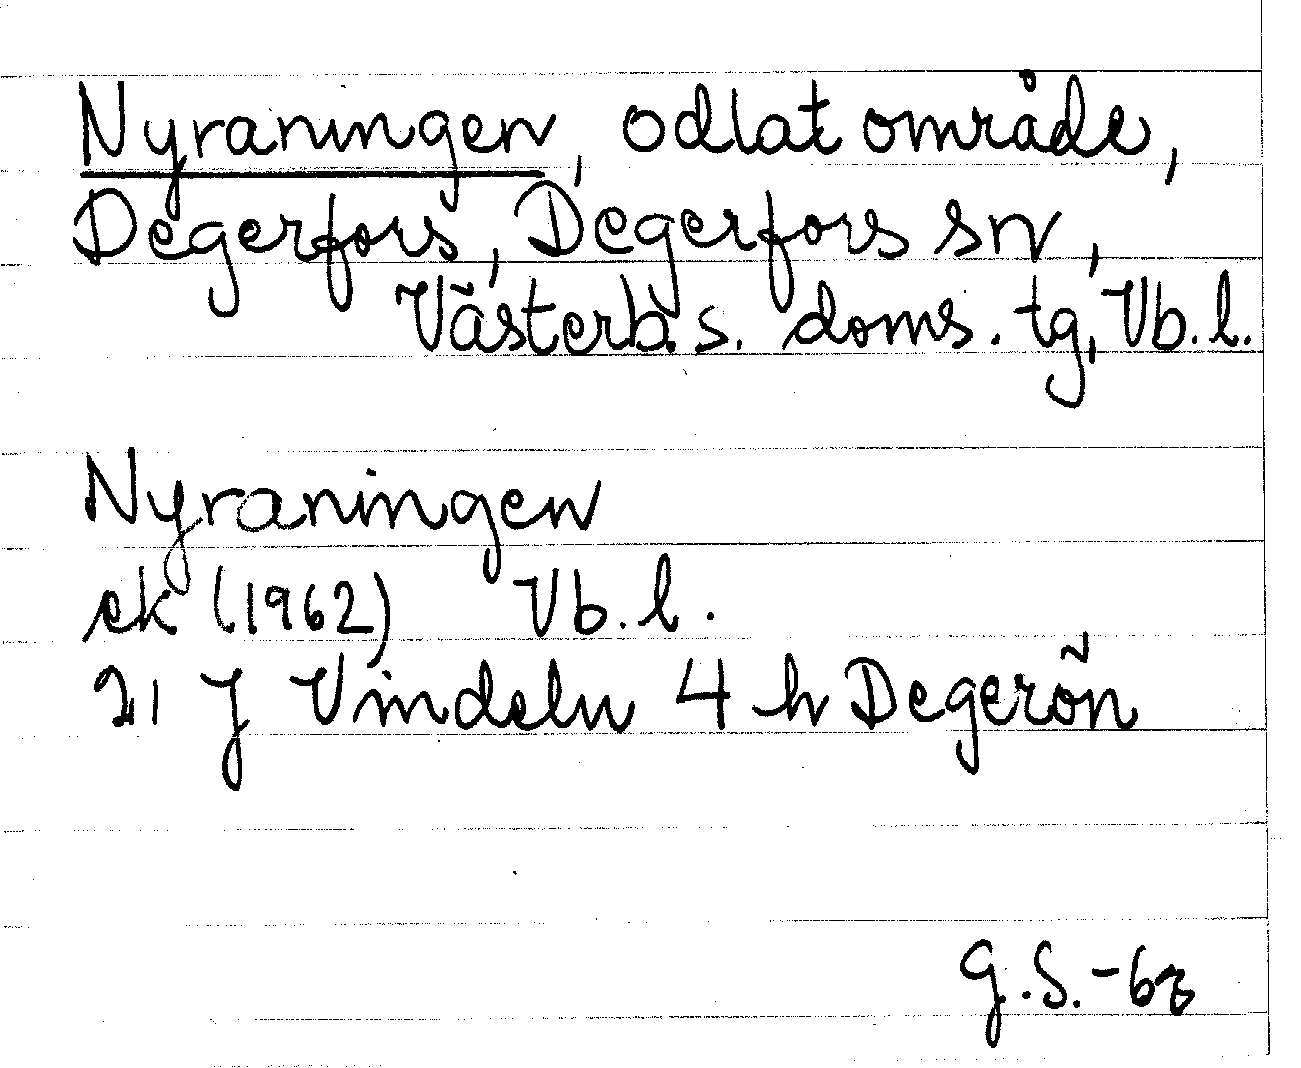 Nyraningen, odlat område,
Degerfors, Degerfors sn,
Västerb. s. doms. tg, Vb. l.
Nyraningen
ek (1962) Vb. l.
21 J Vindeln 4 h Degerön
G. S. -63